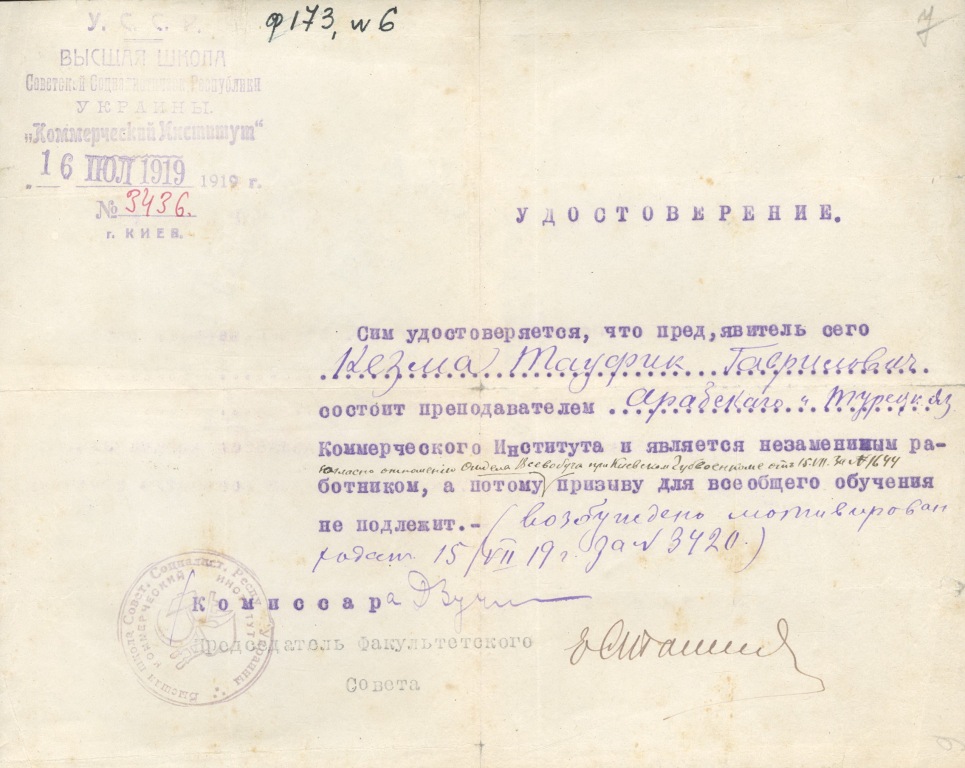 ф 173, № 6
У. С. С. Р.
ВЫСШАЯ ШКОЛА
Советской Социалистической Республики
УКРАИНЫ.
„Коммерческий Институт“
„16 ИЮЛ 1919 1919 г.
№ 3436.
г. КИЕВ.
УДОСТОВЕРЕНИЕ.
Сим удостоверяется, что пред,явитель сего
Кезма Тауфик Гаврилович
состоит преподавателем Арабскаго и Турецк. яз
Коммерческого Института и является незаменимым ра-
согласно отношению Отдела Всевобуча при Киевском Губвоенкоме от 15.VII. за № 1644
ботником, а потому призыву для всеобщего обучения
не подлежит.- (возбуждено мотивирован
ходат. 15/VII 19 г. за № 3420.)
Комиссара
Председатель Факультетского
Совета
Высшая школа Совет. Социалист. Респу. Украины
КОММЕРЧЕСКИЙ ИНСТИТУТ